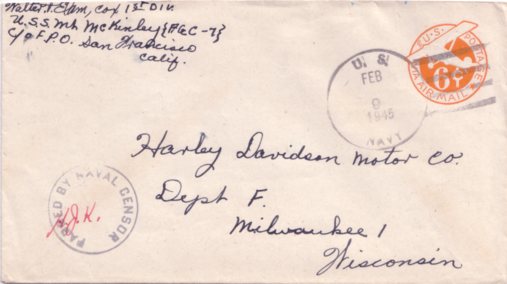 Walter F. Elam, Cox 1st Div.
U.S.S. Mt. McKinley {AGC-7}
C/o F.P.O. San Francisco
Calif.
U.S. POSTAGE
6¢
VIA AIR MAIL
U. S.
FEB
9
1945
NAVY
Harley Davidson Motor Co.
Dept F.
Milwaukee 1
Wisconsin
PASSED BY NAVAL CENSOR
H.J.K.